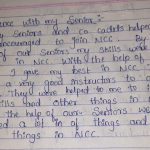 ence with my Senior :-
y Seniors and co cadets helped
encouraged to join NCC. By
of our Seniors my skills were
in NCC. With the help of
I gave my best in NCC.
a very good instructors to
they were helped me to
ills and other things in
the help of our Seniors we
ed a lot in of things and
things in NCC